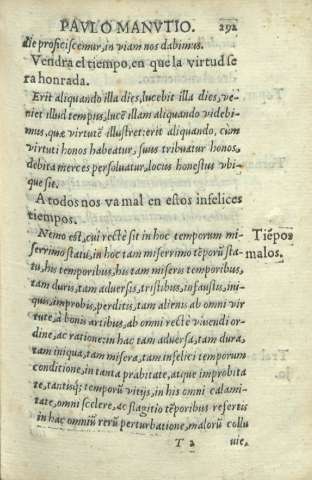 PAVLO MANVTIO. 292
die proficiscemur, in viam nos dabimus.
Vendra el tiempo, en que la virtud se
ra honrada.
Erit aliquando illa dies, lucebit illa dies, ve-
niet illud tempus, lucẽ illam aliquando videbi-
mus, quæ virtutẽ illustret: erit aliquando, cùm
virtuti honos habeatur, suus tribuatur honos,
debita merces persoluatur, locus honestus vbi-
que sit.
A todos nos va mal en estos infelices
tiempos.
Nemo est, cui rectè sit in hoc temporum mi-
serrimo statu, in hoc tam miserrimo tẽporũ sta-
tu, his temporibus, his tam miseris temporibus,
tam duris, tam aduersis, tristibus, infaustis, ini-
quis, improbis, perditis, tam alienis ab omni vir
tute, à bonis artibus, ab omni rectè viuendi or-
dine, ac ratione: in hac tam aduersa, tam dura,
tam iniqua, tam misera, tam infelici temporum
conditione, in tanta prabitate, atque improbita
te, tantisq; temporũ vitijs, in his omni calami-
tate, omni scelere, ac flagitio tẽporibus refertis
in hac omniũ rerũ perturbatione, malorũ collu
T 2 uie,
Tiẽpos
malos.